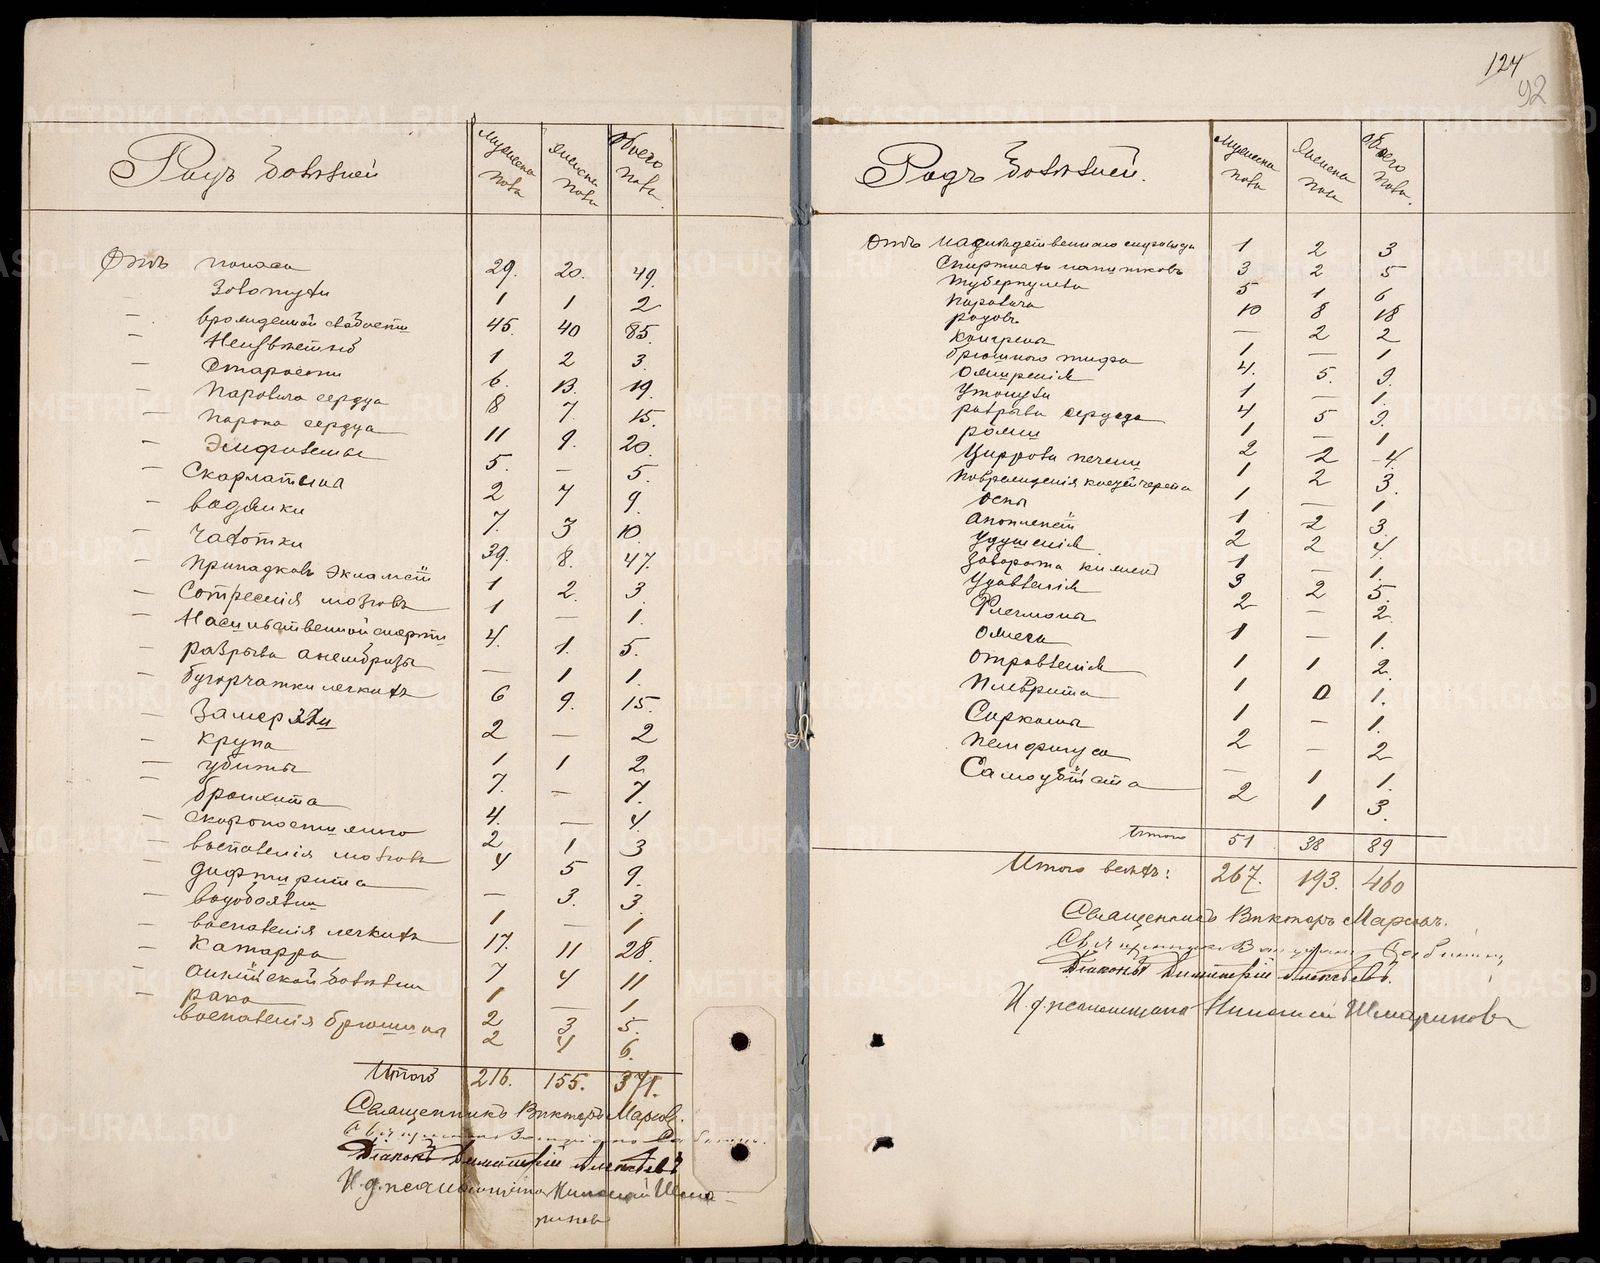 Родъ болѣзней
Мужеска пола
Женска пола
Обоего пола.
Отъ поноса 29. 20. 49.
Золотухи 1 1 2
— врожденной слабости 45. 40 85.
— Неизвѣстно 1 2 3.
— Старости 6. 13. 19.
— Паралича сердца 8 7. 15.
— Порока сердца 11 9. 20.
— Эмфиземы 5. — 5.
— Скарлатина 2 7 9.
— водянки 7. 3 10.
— Чахотки 39. 8. 47.
— Припадковъ Экламсіи 1 2. 3
— Сотресенія мозговъ 1 — 1.
— Насильственной смерти 4. 1. 5.
— разрыва аневризы — 1 1.
— бугорчатки легкихъ 6 9. 15.
— Замерзли 2 — 2
— крупа 1 1 2
— убиты 7. — 7.
— бронхита 4. — 4.
— скоропостижно 2 1 3
— воспаленія мозговъ 4 5 9.
— дифтирита — 3. 3
— водобоязни 1 — 1
— воспаленія легкихъ 17. 11 28.
— Катарра 7 4 11
— англійской болѣзни 1 — 1
— рака 2 3 5.
воспаленія брюшина 2 4 6.
Итого 216. 155. 371.
Священникъ Викторъ Марсовъ.
Діаконъ Димитрій Алексѣевъ
И. д. псаломщика Николай Шма-
риновъ
124
92
Родъ болѣзней.
Мужеска пола
Женска пола
Обоего пола.
Отъ 1 2 3
Спиртныхъ напитковъ 3 2 5
туберкулеза 5 1 6
паралича 10 8 18
родовъ — 2 2
конгрены 1 — 1
брюшного тифа 4. 5. 9.
Ожиренія 1 — 1.
Утонули 4 5 9.
разрыва сердца 1 — 1
рожи 2 2 4.
Циррова печени 1 2 3.
поврежденія костей черепа 1 — 1
оспы 1 2 3.
апоплексіи 2 2 4
Удушенія 1 — 1.
Заворота кишекъ 3 2 5.
Удавленія 2 — 2.
Флегмоны 1 — 1.
Ожега 1 1 2.
отравленія 1 0 1.
Плеврита 1 — 1.
Саркомы 2 — 2
пемфигуса — 1 1.
Самоубійства 2 1 3.
Итого 51 38 89
Итого всѣхъ: 267. 193. 460
Священникъ Викторъ Марсовъ.
Діаконъ Димитрій Алексѣевъ.
И. д. псаломщика Николай Шмариновъ
METRIKI.GASO-URAL.RU